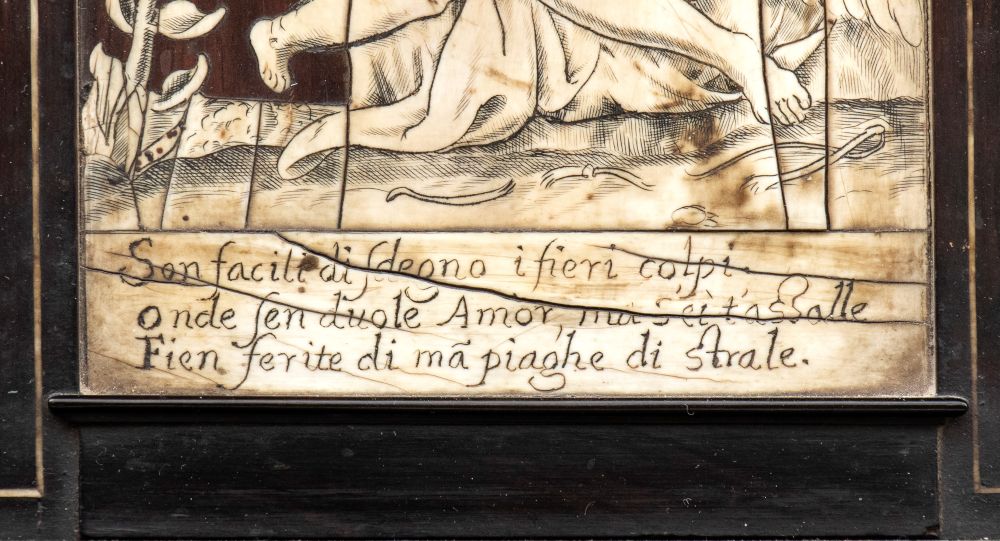 Son facili di ſdegno i fieri colpi.
onde ſen duole Amor, ma s'ei t'aſsalle
Fien ferite di mã piaghe di strale.